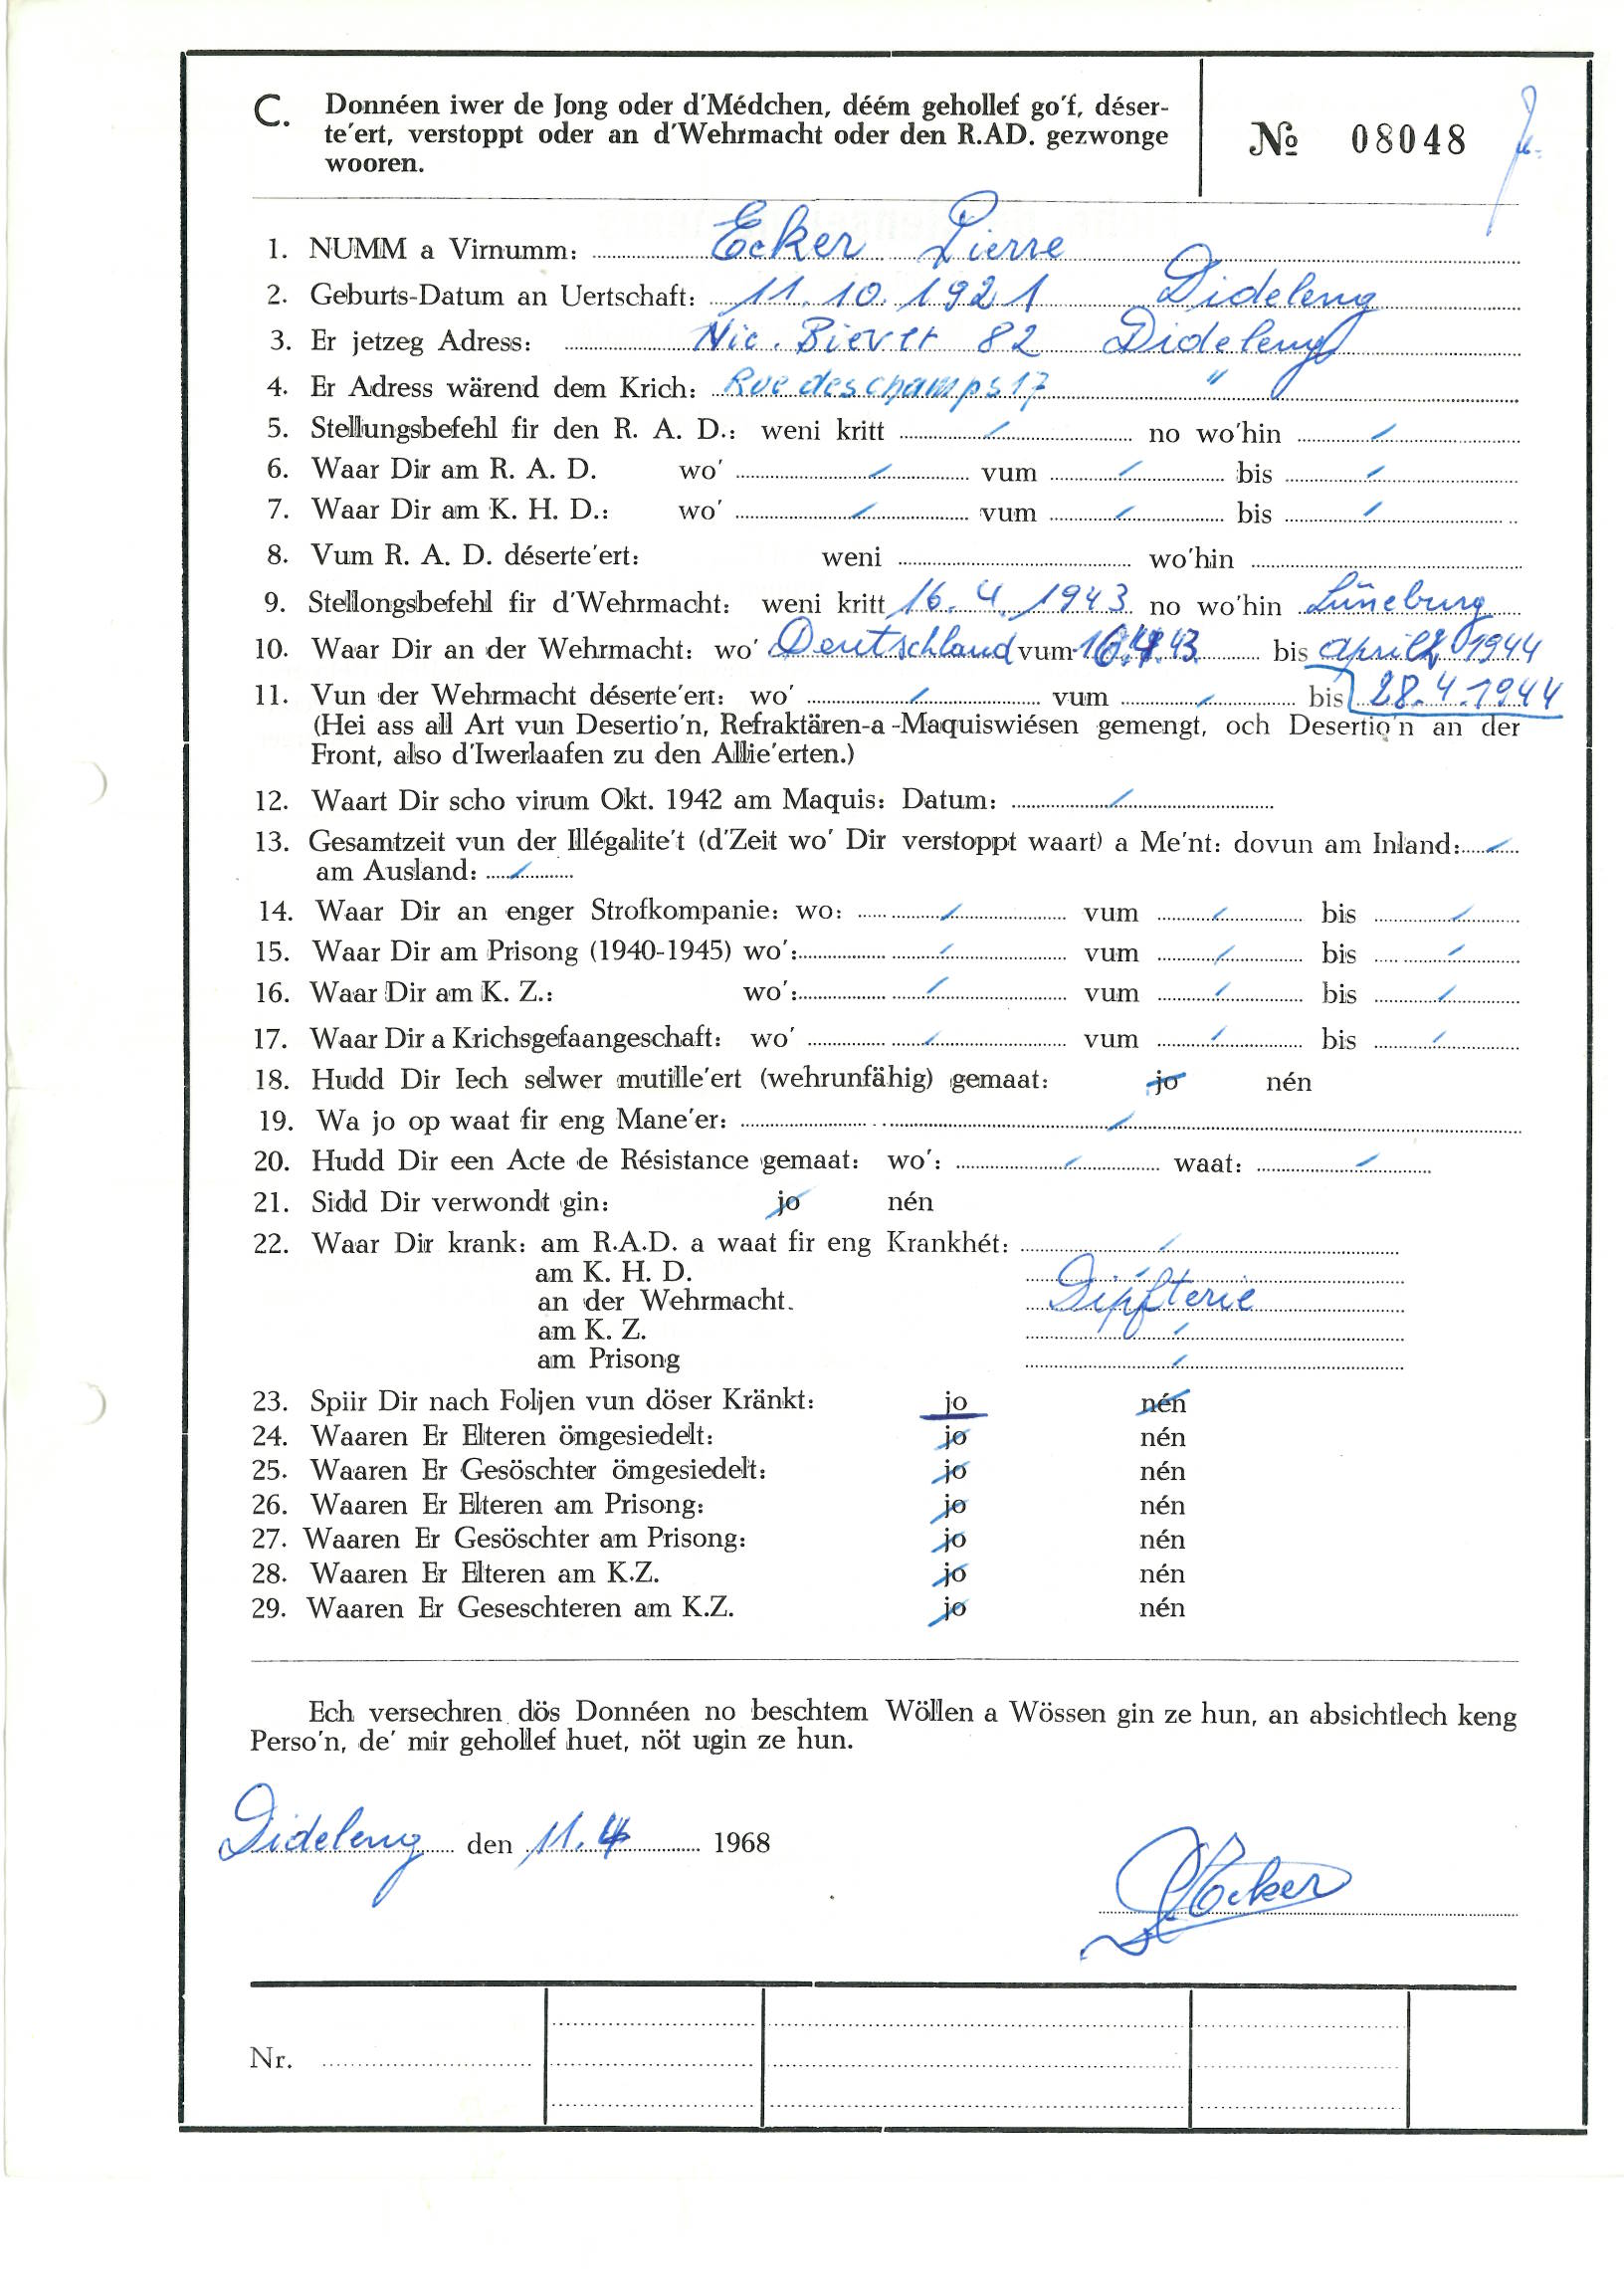 C. Donnéen iwer de Jong oder d'Médchen, déém gehollef go'f, déser-
te'ert, verstoppt oder an d'Wehrmacht oder den R.AD. gezwonge
wooren.
№ 08048
1. NUMM a Virnumm: Ecker Pierre
2. Geburts-Datum an Uertschaft: 11.10.1921 Dideleng
3. Er jetzeg Adress: Nic. Biever 82 Dideleng
4. Er Adress wärend dem Krich: Rue des champs 17 "
5. Stellungsbefehl fir den R. A. D.: weni kritt / no wo'hin /
6. Waar Dir am R. A. D. wo' / vum / bis /
7. Waar Dir am K. H. D.: wo' / vum / bis /
8. Vum R. A. D. déserte'ert: weni wo'hin
9. Stellongsbefehl fir d'Wehrmacht: weni kritt 16.4.1943 no wo'hin Lüneburg
10. Waar Dir an der Wehrmacht: wo' Deutschland vum 16.4.43 bis April 1944
11. Vun der Wehrmacht déserte'ert: wo' / vum / bis 28.4.1944
(Hei ass all Art vun Desertio'n, Refraktären-a-Maquiswiésen gemengt, och Desertio'n an der
Front, also d'Iwerlaafen zu den Allie'erten.)
12. Waart Dir scho virum Okt. 1942 am Maquis: Datum: /
13. Gesamtzeit vun der Illégalite't (d'Zeit wo' Dir verstoppt waart) a Me'nt: dovun am Inland: /
am Ausland: /
14. Waar Dir an enger Strofkompanie: wo: / vum / bis /
15. Waar Dir am Prisong (1940-1945) wo': / vum / bis /
16. Waar Dir am K. Z.: wo': / vum / bis /
17. Waar Dir a Krichsgefaangeschaft: wo' / vum / bis /
18. Hudd Dir Iech selwer mutille'ert (wehrunfähig) gemaat: jo nén
19. Wa jo op waat fir eng Mane'er: /
20. Hudd Dir een Acte de Résistance gemaat: wo': / waat: /
21. Sidd Dir verwondt gin: jo nén
22. Waar Dir krank: am R.A.D. a waat fir eng Krankhét: /
am K. H. D. /
an der Wehrmacht. Dipfterie
am K. Z. /
am Prisong /
23. Spiir Dir nach Foljen vun döser Kränkt: jo nén
24. Waaren Er Elteren ömgesiedelt: jo nén
25. Waaren Er Gesöschter ömgesiedelt: jo nén
26. Waaren Er Elteren am Prisong: jo nén
27. Waaren Er Gesöschter am Prisong: jo nén
28. Waaren Er Elteren am K.Z. jo nén
29. Waaren Er Geseschteren am K.Z. jo nén
Ech versechren dös Donnéen no beschtem Wöllen a Wössen gin ze hun, an absichtlech keng
Perso'n, de' mir gehollef huet, nöt ugin ze hun.
Dideleng den 11.4 1968
P. Ecker
Nr.